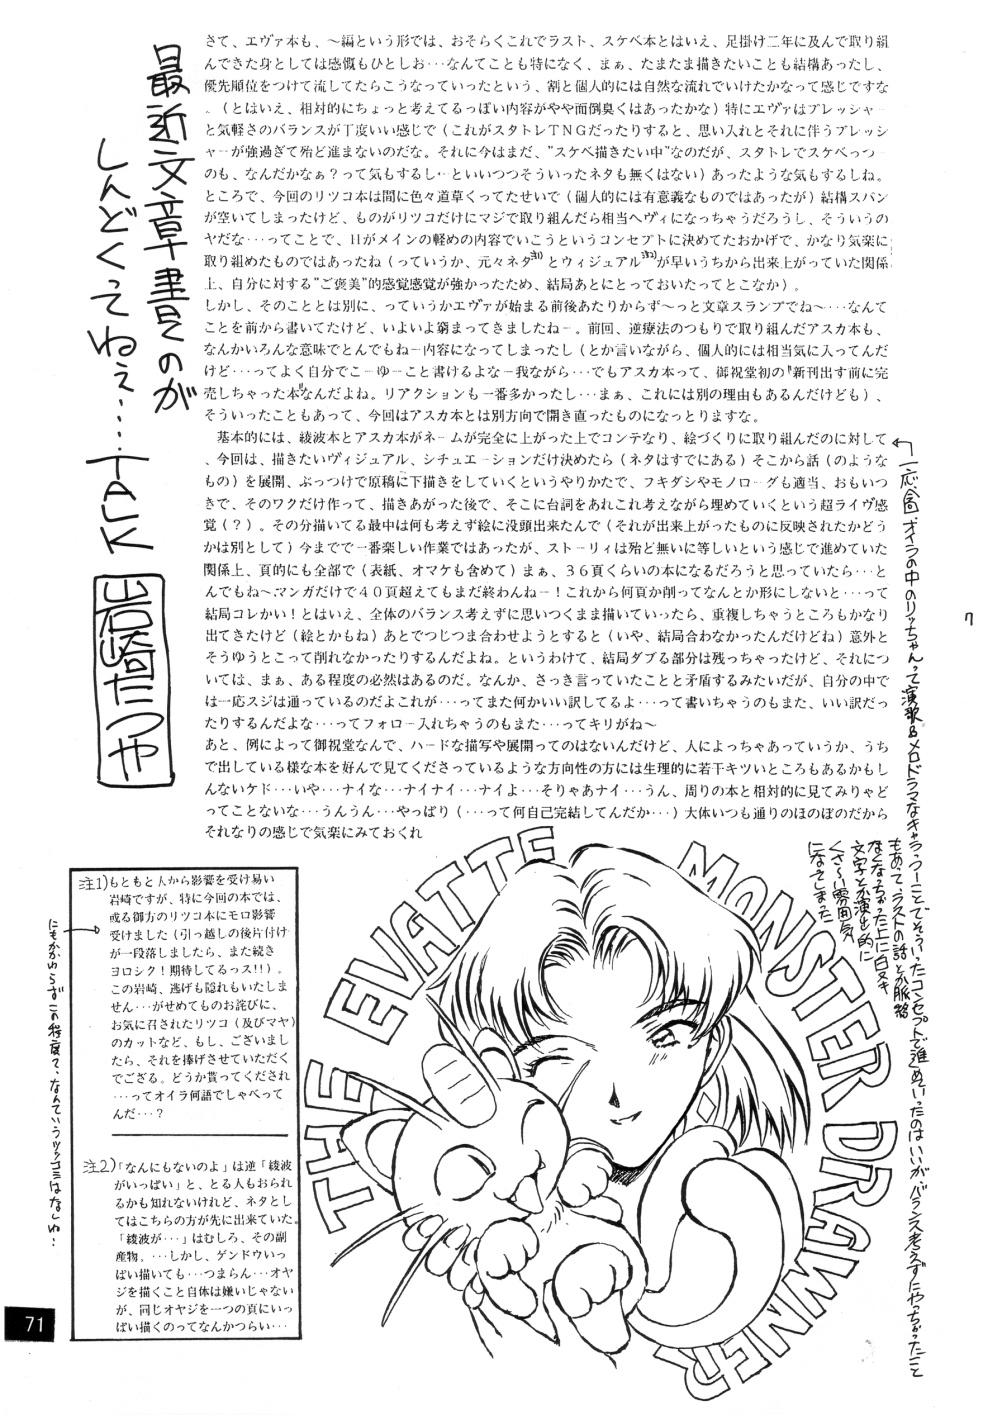 最近文章書くのが
しんどくってねぇ・・・・TALK
岩崎たつや
さて、エヴァ本も、～編という形では、おそらくこれでラスト、スケベ本とはいえ、足掛け二年に及んで取り組
んできた身としては感慨もひとしお･･･なんてことも特になく、まぁ、たまたま描きたいことも結構あったし、
優先順位をつけて流してたらこうなっていったという、割と個人的には自然な流れでいけたかなって感じですな
。（とはいえ、相対的にちょっと考えてるっぽい内容がやや面倒臭くはあったかな）特にエヴァはプレッシャー
と気軽さのバランスが丁度いい感じで（これがスタトレＴＮＧだったりすると、思い入れとそれに伴うプレッシ
ャーが強過ぎて殆ど進まないのだな。それに今はまだ、”スケベ描きたい中”なのだが、スタトレでスケベっつー
のも、なんだかなぁ？って気もするし･･といいつつそういったネタも無くはない）あったような気もするしね。
ところで、今回のリツコ本は間に色々道草くってたせいで（個人的には有意義なものではあったが）結構スパン
が空いてしまったけど、ものがリツコだけにマジで取り組んだら相当ヘヴィになっちゃうだろうし、そういうの
ヤだな･･･ってことで、Ｈがメインの軽めの内容でいこうというコンセプトに決めてたおかげで、かなり気楽に
取り組めたものではあったね（っていうか、元々ネタ注1)とヴィジュアル注2)が早いうちから出来上がっていた関係
上、自分に対する”ご褒美”的感覚感覚が強かったため、結局あとにとっておいたってとこなか）。
しかし、そのこととは別に、っていうかエヴァが始まる前後あたりからず～っと文章スランプでね～･･･なんて
ことを前から書いてたけど、いよいよ窮まってきましたねー。前回、逆療法のつもりで取り組んだアスカ本も、
なんかいろんな意味でとんでもねー内容になってしまったし（とか言いながら、個人的には相当気に入ってんだ
けど･･･ってよく自分でこーゆーこと書けるよなー我ながら･･･でもアスカ本って、御祝堂初の『新刊出す前に完
売しちゃった本』なんだよね。リアクションも一番多かったし･･･まぁ、これには別の理由もあるんだけども）、
そういったこともあって、今回はアスカ本とは別方向で開き直ったものになっとりますな。
　基本的には、綾波本とアスカ本がネームが完全に上がった上でコンテなり、絵づくりに取り組んだのに対して
、今回は、描きたいヴィジュアル、シチュエーションだけ決めたら（ネタはすでにある）そこから話（のような
もの）を展開、ぶっつけで原稿に下描きをしていくというやりかたで、フキダシやモノローグも適当、おもいつ
きで、そのワクだけ作って、描きあがった後で、そこに台詞をあれこれ考えながら埋めていくという超ライヴ感
覚（？）。その分描いてる最中は何も考えず絵に没頭出来たんで（それが出来上がったものに反映されたかどう
かは別として）今までで一番楽しい作業ではあったが、ストーリィは殆ど無いに等しいという感じで進めていた
関係上、頁的にも全部で（表紙、オマケも含めて）まぁ、３６頁くらいの本になるだろうと思っていたら･･･と
んでもね～､マンガだけで４０頁超えてもまだ終わんねー！これから何頁か削ってなんとか形にしないと･･･って
結局コレかい！とはいえ、全体のバランス考えずに思いつくまま描いていったら、重複しちゃうところもかなり
出てきたけど（絵とかもね）あとでつじつま合わせようとすると（いや、結局合わなかったんだけどね）意外と
そうゆうとこって削れなかったりするんだよね。というわけで、結局ダブる部分は残っちゃったけど、それにつ
いては、まぁ、ある程度の必然はあるのだ。なんか、さっき言っていたことと矛盾するみたいだが、自分の中で
は一応スジは通っているのだよこれが･･･ってまた何かいい訳してるよ･･･って書いちゃうのもまた、いい訳だっ
たりするんだよな･･･ってフォロー入れちゃうのもまた･･･ってキリがね～
あと、例によって御祝堂なんで、ハードな描写や展開ってのはないんだけど、人によっちゃあっていうか、うち
で出している様な本を好んで見てくださっているような方向性の方には生理的に若干キツいところもあるかもし
んないケド･･･いや･･･ナイな･･･ナイナイ･･･ナイよ･･･そりゃあナイ･･･うん、周りの本と相対的に見てみりゃど
ってことないな･･･うんうん･･･やっぱり（･･･って何自己完結してんだか･･･）大体いつも通りのほのぼのだから
それなりの感じで気楽にみておくれ
一応今回、オイラの中のリッちゃんって演歌&メロドラマなキャラ、つーことでそういったコンセプトで進めていったのはいいが、バランス考えずにやっちゃったこと
もあって、ラストの話とか脈絡
なくなっちゃった上に白ヌキ
文字とか演出的に
くさ～い雰囲気
になってしまった
7
注1)もともと人から影響を受け易い
岩崎ですが、特に今回の本では、
或る御方のリツコ本にモロ影響
受けました（引っ越しの後片付け
が一段落しましたら、また続き
ヨロシク！期待してるっス!!）。
この岩崎、逃げも隠れもいたしま
せん･･･がせめてものお詫びに、
お気に召されたリツコ（及びマヤ）
のカットなど、もし、ございまし
たら、それを捧げさせていただく
でござる。どうか貰ってくだされ
･･･ってオイラ何語でしゃべって
んだ･･･？
注2)「なんにもないのよ」は逆「綾波
がいっぱい」と、とる人もおられ
るかも知れないけれど、ネタとし
てはこちらの方が先に出来ていた。
「綾波が･･･」はむしろ、その副
産物、･･･しかし、ゲンドウいっ
ぱい描いても･･･つまらん･･･オヤ
ジを描くこと自体は嫌いじゃない
が、同じオヤジを一つの頁にいっ
ぱい描くのってなんかつらい･･･
にもかかわらずこの程度？、なんていうツッコミはなしね…
THE EVATTE MONSTER DRAWNER
71